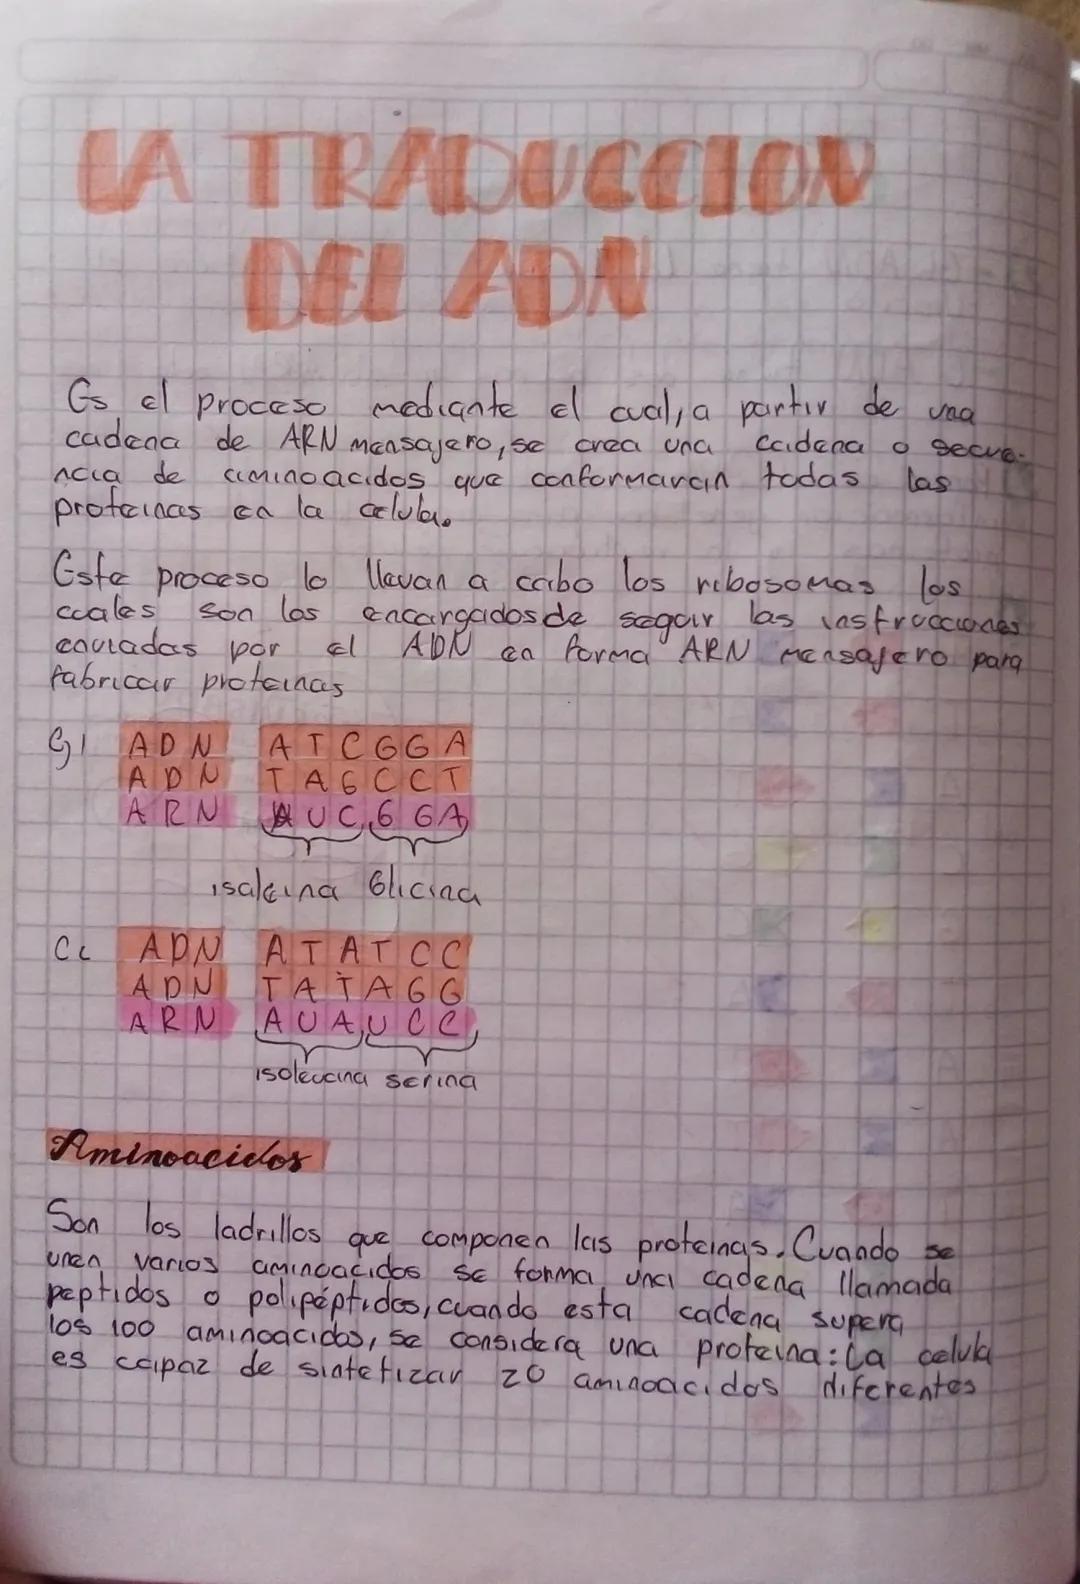 LA TRADUCCION
DEL ADN
Es el proceso mediante el cual, a partir de una
cadena de ARN mensajero, se crea una cadena o secue-
ncia de aminoacidos que conformaran todas las
proteinas en la celula.
Este proceso lo llevan a cabo los ribosomas los
cuales son los encargados de seguir las instrucciones
enviadas por el ADN en forma ARN mensajero para
fabricar proteinas
Ej ADN ATCGGA
ADN TAGCCT
ARN AUCGGA
isaleina Glicina
ADN ATATCC
ADN TATAGG
ARN AUAUCC
isoleucina serina
Aminoacidos
Son los ladrillos que componen las proteinas. Cuando se
unen varios aminoacidos se forma una cadena llamada
peptidos o polipéptidos, cuando esta cadena supera
los 100 aminoacidos, se considera una proteina: La celula
es capaz de sintetizar 20 aminoacidos diferentes